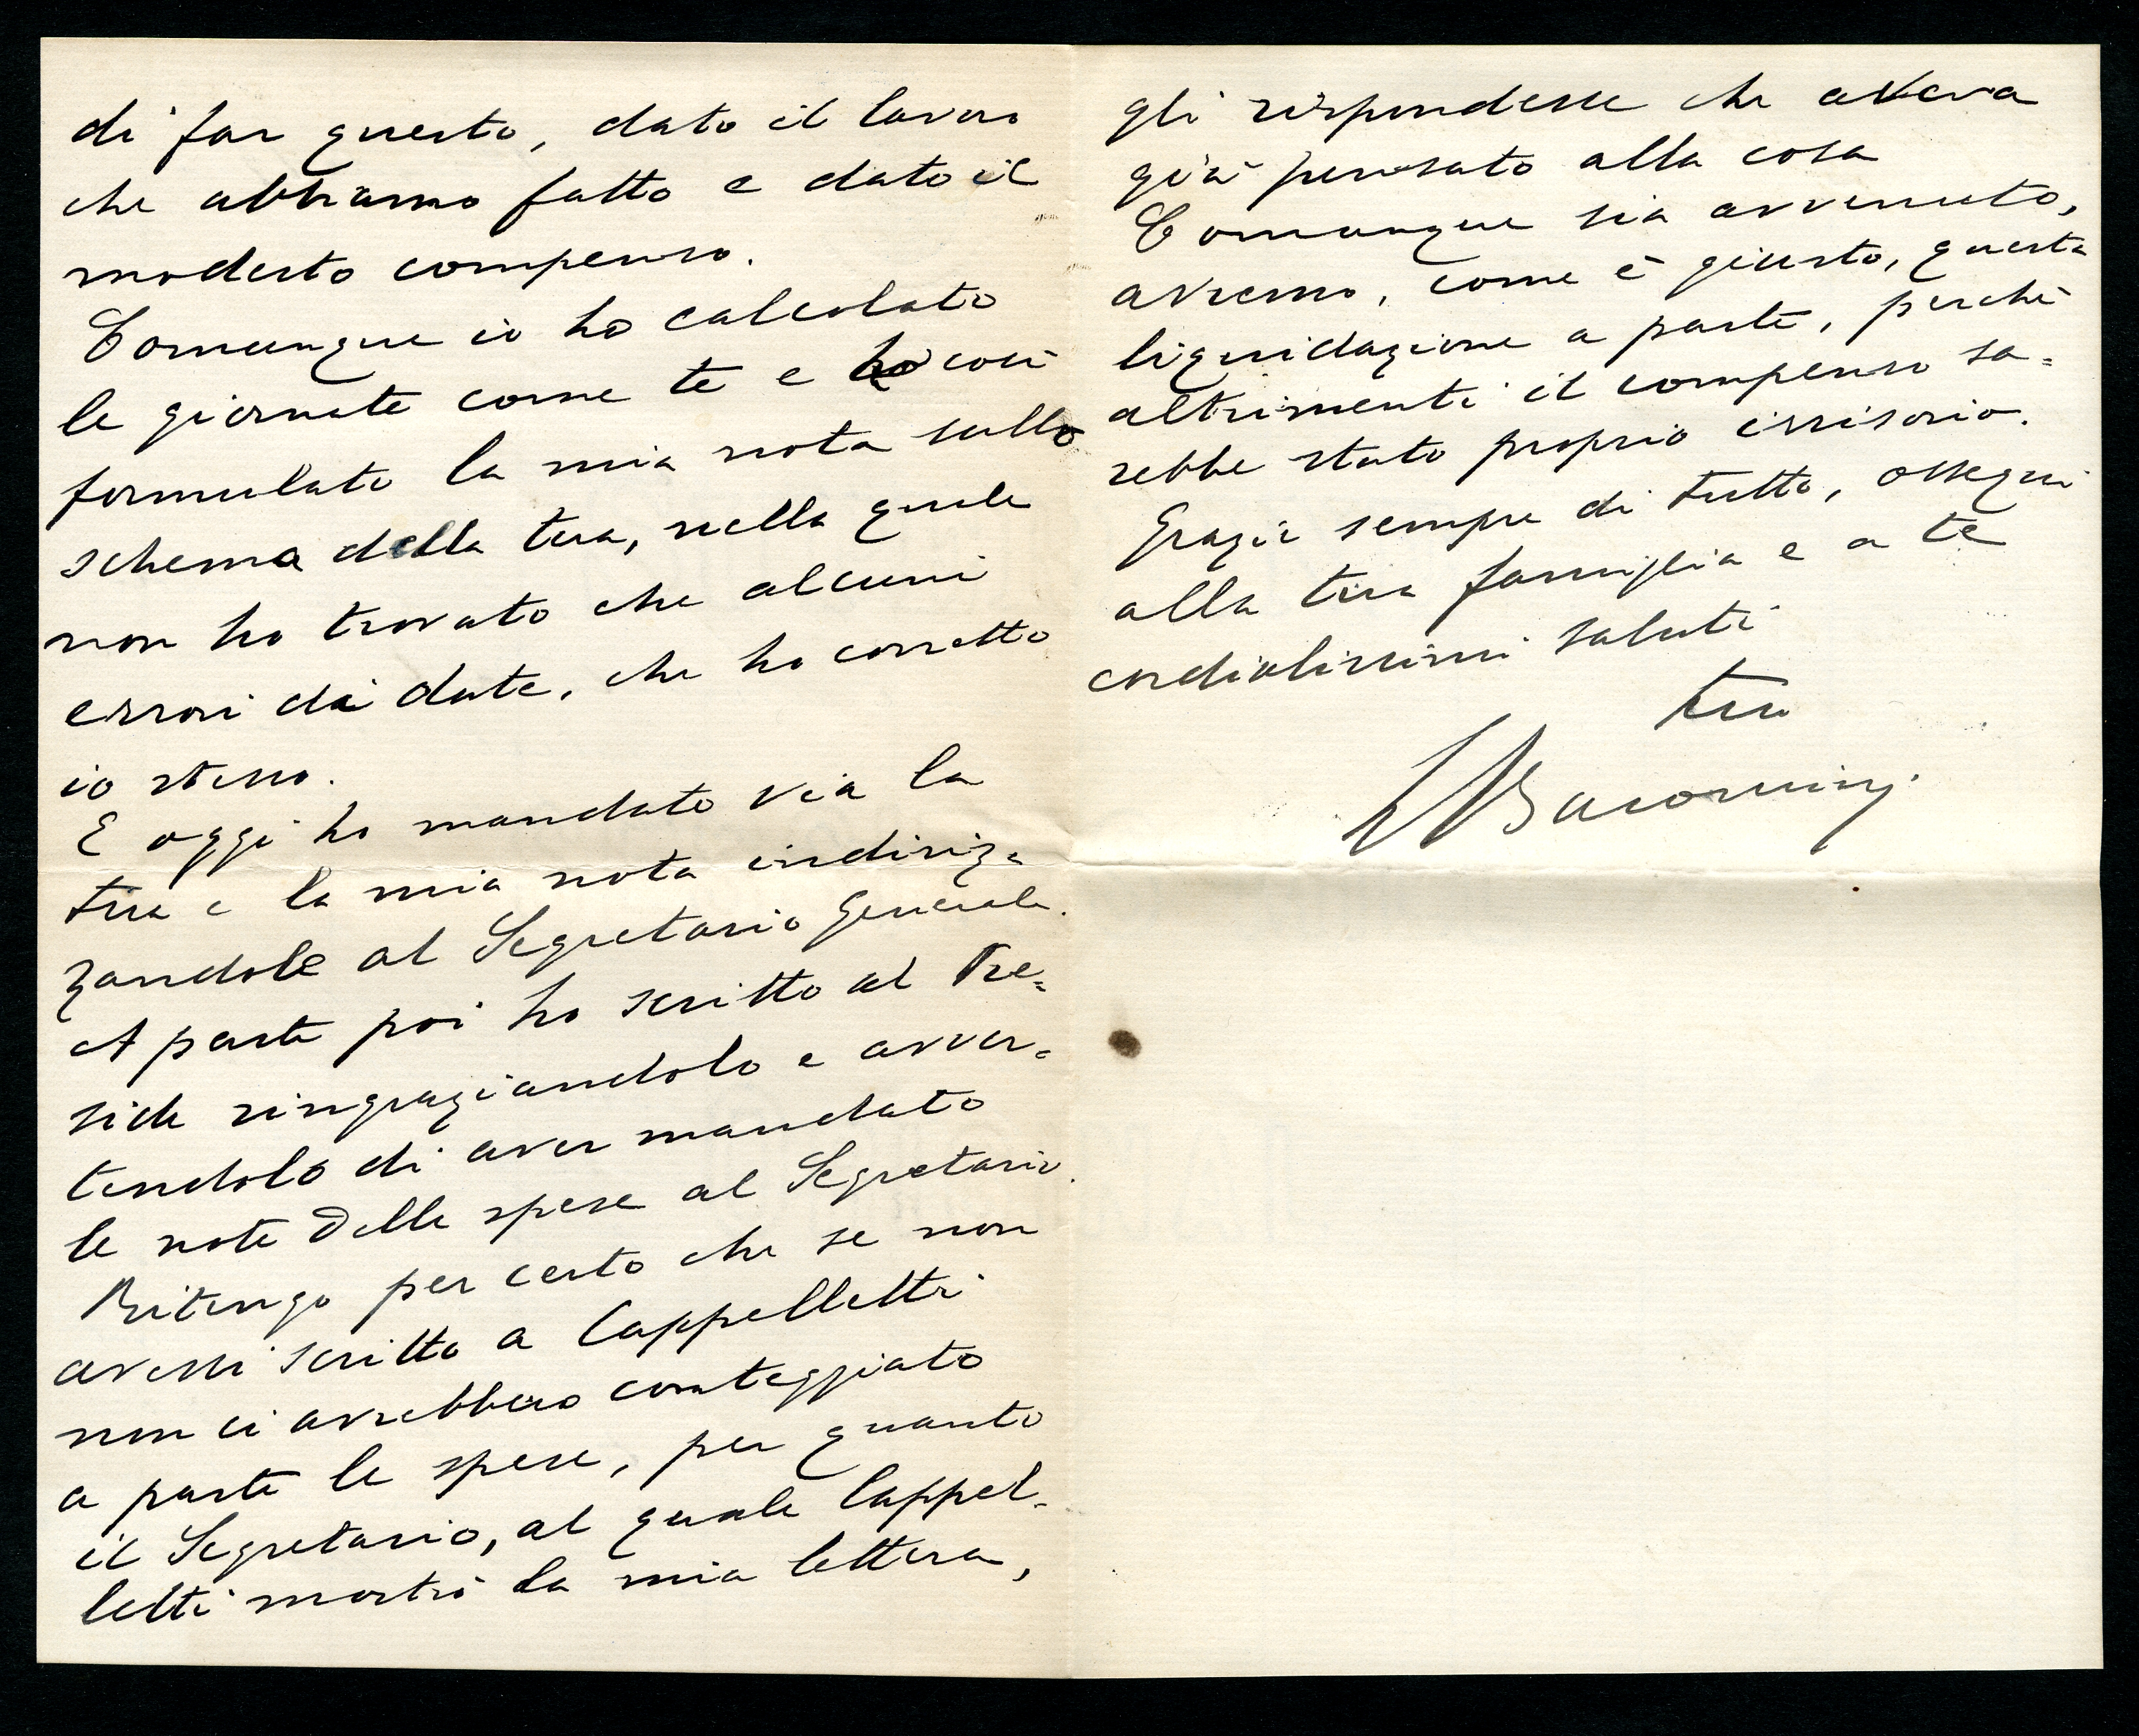 di far questo, dato il lavoro
che abbiamo fatto e dato il
modesto compenso.
Comunque io ho calcolato
le giornate come te e ho così
formulato la mia nota sullo
schema della tua, nella quale
non ho trovato che alcuni
errori di date, che ho corretto
io stesso.
E oggi ho mandato via la
tua e la mia nota indiriz=
zandole al Segretario Generale.
A parte poi ho scritto al Pre=
side ringraziandolo e avver=
tendolo di aver mandato
le note delle spese al Segretario.
Ritengo per certo che se non
avessi scritto a Cappelletti
non ci avrebbero conteggiato
a parte le spese, per quanto
il Segretario, al quale Cappel=
letti mostrò la mia lettera,
gli rispondesse che aveva
già pensato alla cosa
Comunque sia avvenuto,
avremo, come è giusto, questa
liquidazione a parte, perchè
altrimenti il compenso sa=
rebbe stato proprio irrisorio.
Grazie sempre di tutto, ossequi
alla tua famiglia e a te
cordialissimi saluti
tuo